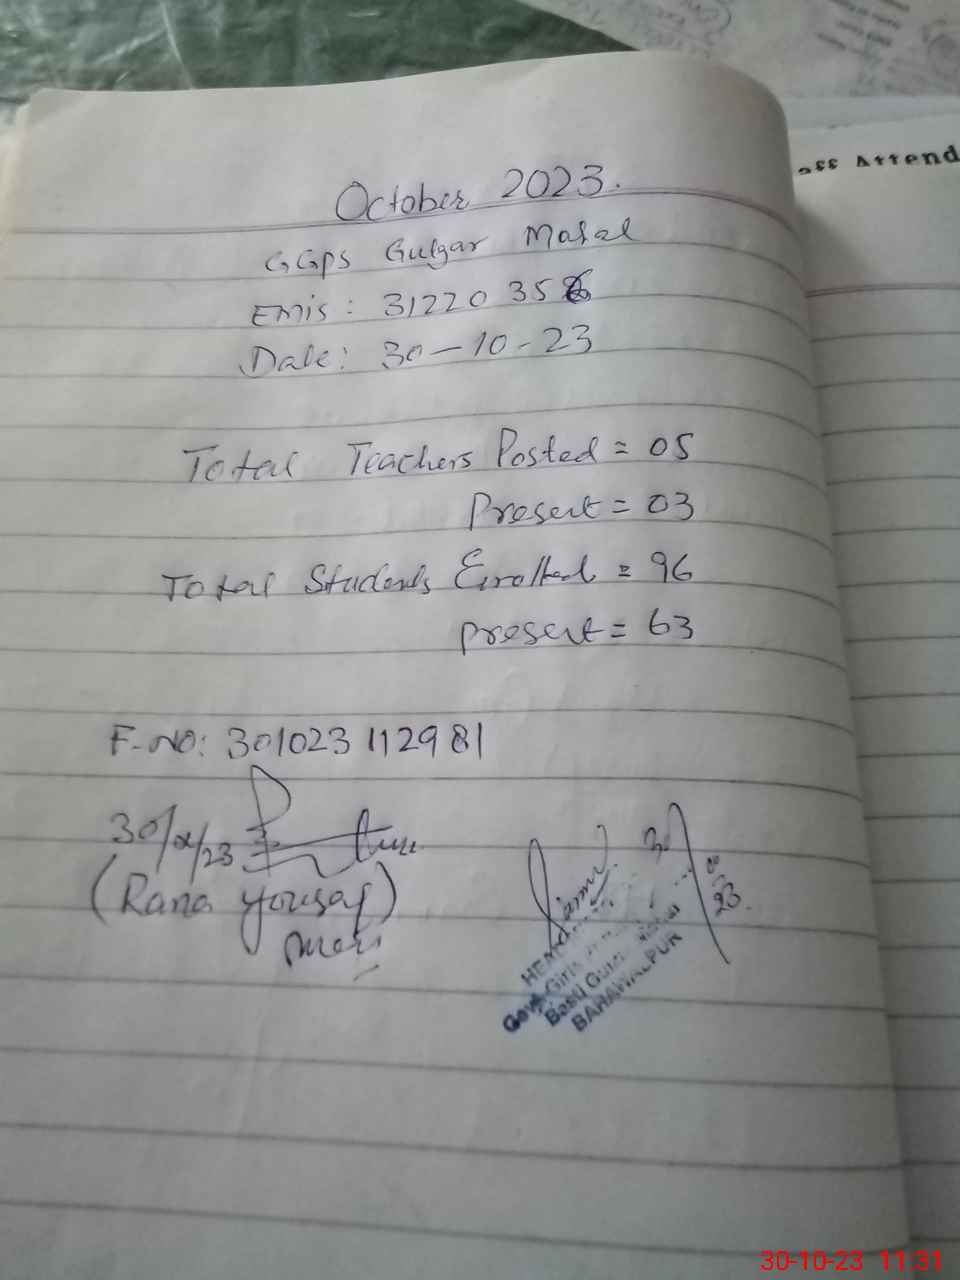 October 2023.
GGPS Gulzar Mahal
EMIS: 31220356
Date: 30-10-23
Total Teachers Posted = 05
Present = 03
Total Students Enrolled = 96
Present = 63
F-NO: 301023112981
30/10/23
(Rana Yousaf)
23.
Govt. Girls
Basti
BAHAWALPUR
Attend
30-10-23 11:31